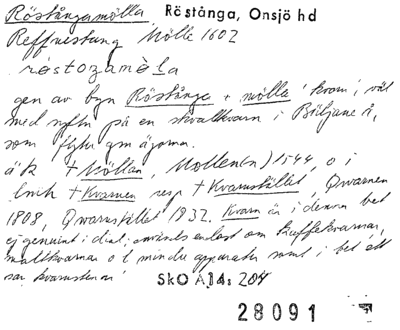 Röstångamölla, Röstånga, Onsjö hd
Reffuestung Mölle 1602
röstoŋamöla
gen av byn Röstånga + mölla 'kvarn', väl
med syftn på en skvaltkvarn i Bäljane å,
som flyter gm ägorna.
äk + Möllan, Mollen(n) 1544, o i
Enik + Kvarnen resp + Kvarnstället, Qwarnen
1808, Qwarnstället 1832. Kvarn är i denna bet
ej genuint i dial, används endast om kaffekvarnar,
maltkvarnar o l mindre apparater samt i bet att
sar kvarnstenar
Sko A]4: 204
28091